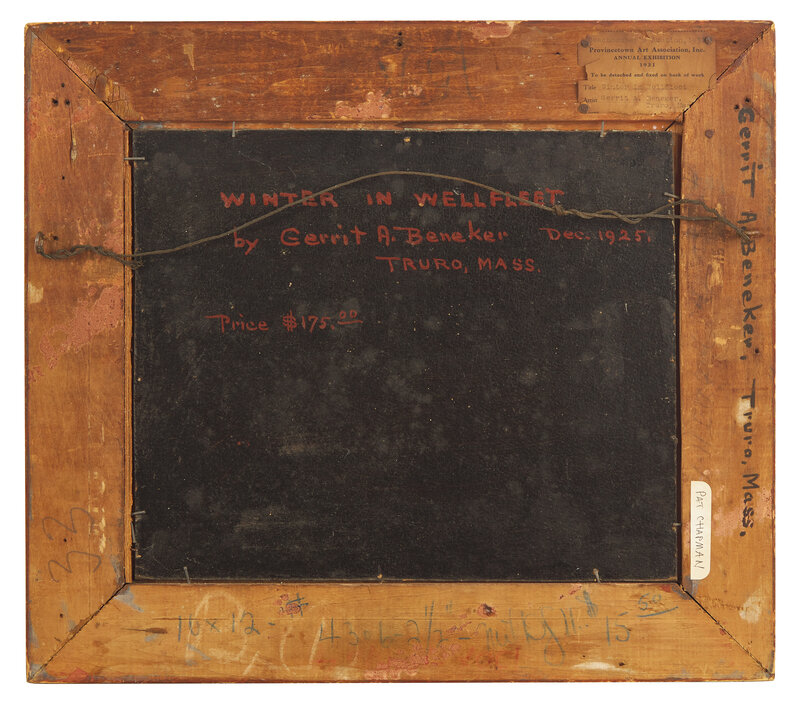 Provincetown Art Association, Inc.
ANNUAL EXHIBITION
1931
To be detached and fixed on back of work
Title Winter in Wellfleet
Artist Gerrit A. Beneker,
Truro,
WINTER IN WELLFLEET
by Gerrit A. Beneker Dec. 1925.
TRURO, MASS.
Price $175.00
Gerrit A. Beneker. Truro, Mass.
PAT CHAPMAN
16 x 12 -
15